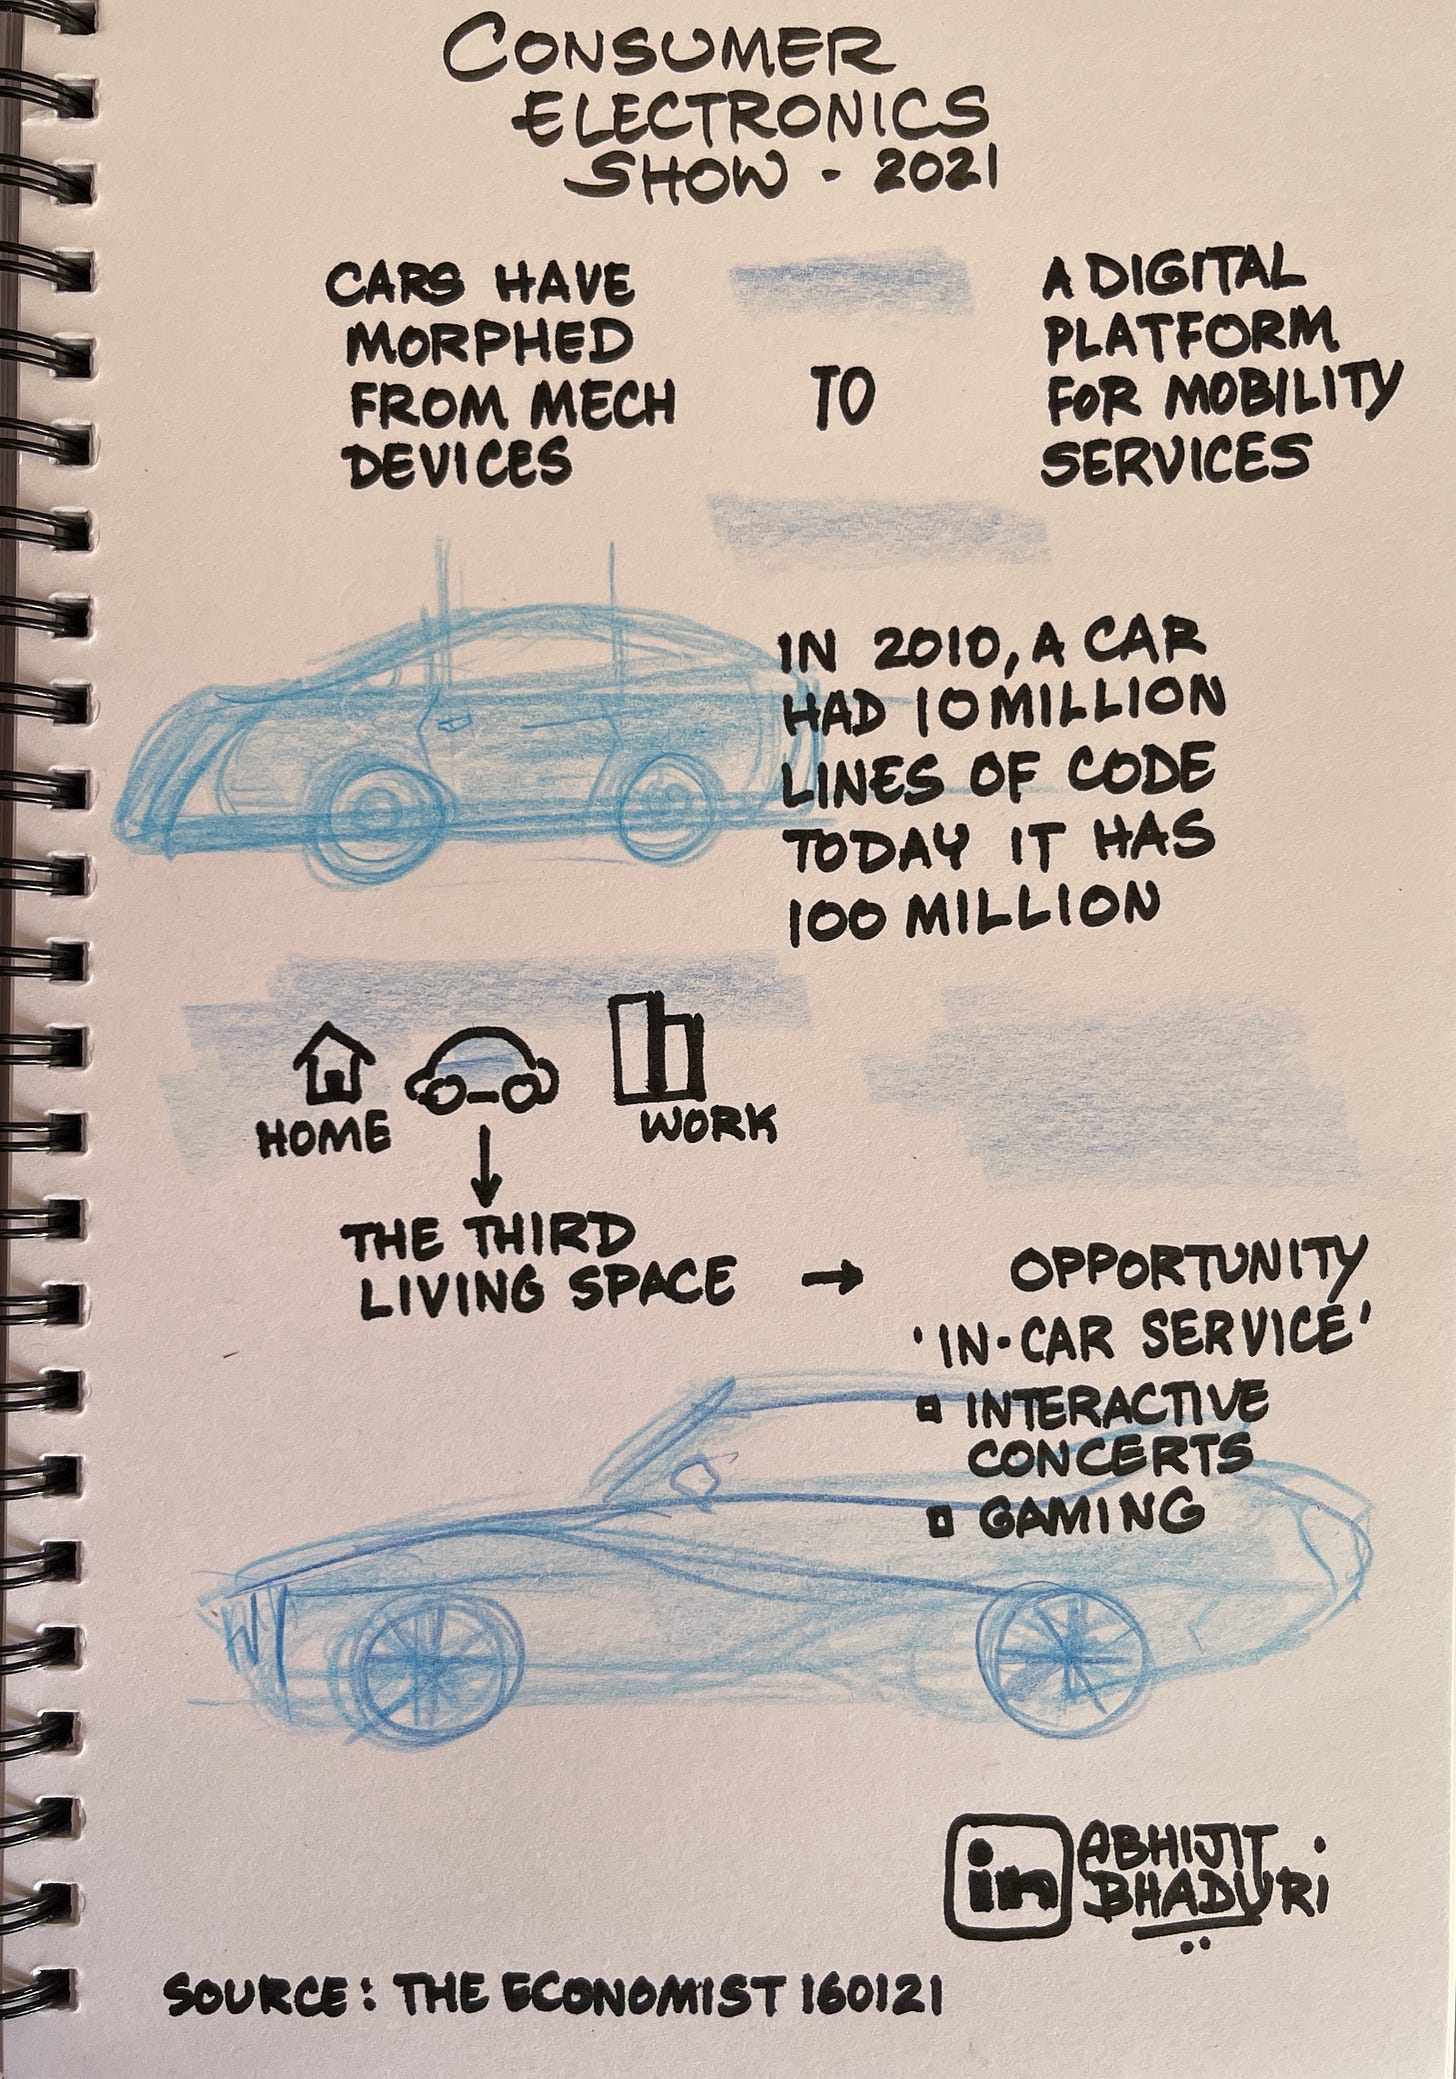 CONSUMER
ELECTRONICS
SHOW - 2021
CARS HAVE
MORPHED
FROM MECH
DEVICES
TO
A DIGITAL
PLATFORM
FOR MOBILITY
SERVICES
IN 2010, A CAR
HAD 10 MILLION
LINES OF CODE
TODAY IT HAS
100 MILLION
HOME
WORK
THE THIRD
LIVING SPACE →
OPPORTUNITY
'IN-CAR SERVICE'
▫ INTERACTIVE
CONCERTS
▫ GAMING
in ABHIJIT
BHADURI
SOURCE: THE ECONOMIST 160121